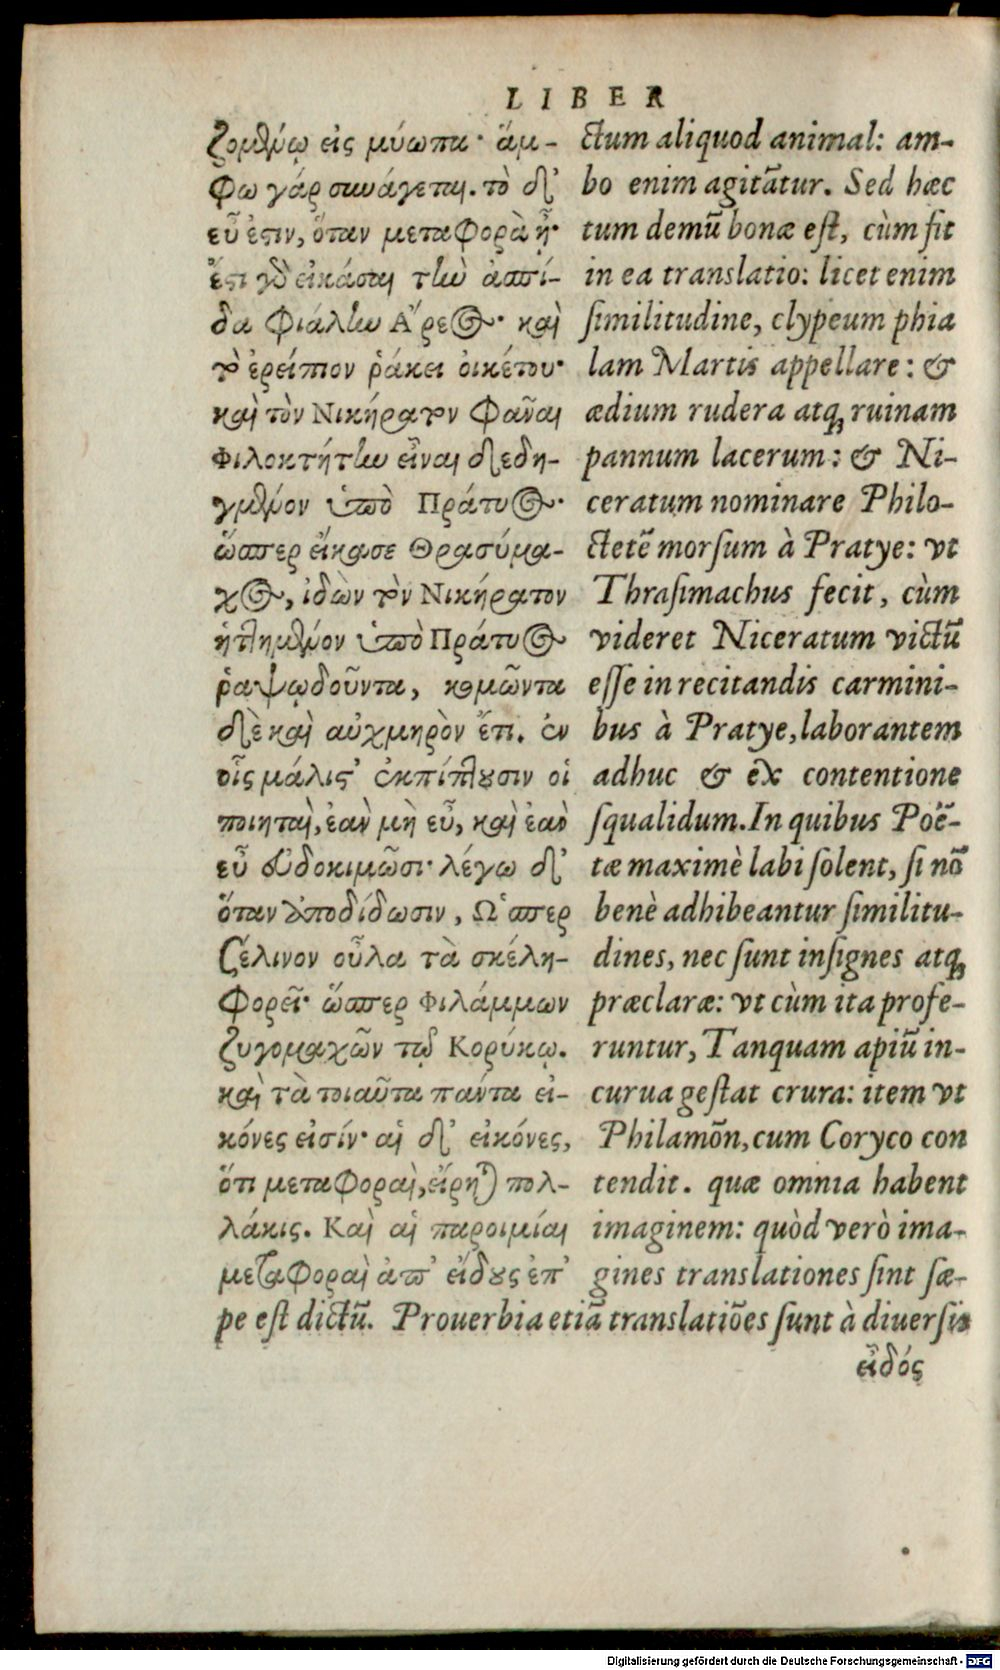 LIBER
ζομένῳ εἰς μύωπα· ἄμ-
φω γάρ συνάγεται. τὸ δ'
εὖ ἐστιν, ὅταν μεταφορὰ ᾖ·
ἔστι γὸ εἰκάσαι τὴν ἀσπί-
δα φιάλην Ἄρεος· καὶ
τὸ ἐρείπιον ῥάκει οἰκέτου·
καὶ τὸν Νικήρατον φᾶναι
φιλοκτήτην εἶναι δεδη-
γμένον ὑπὸ Πράτυος·
ὥσπερ εἴκασε Θρασύμα-
χος, ἰδὼν τὸν Νικήρατον
ἡττημένον ὑπὸ Πράτυος
ῥαψῳδοῦντα, κομῶντα
δὲ καὶ αὐχμηρὸν ἔτι. ἐν
οἷς μάλιστ' ἐκπίπτουσιν οἱ
ποιηταὶ, ἐὰν μὴ εὖ, καὶ ἐὰν
εὖ εὐδοκιμῶσι· λέγω δ'
ὅταν ἀποδίδωσιν, Ὥσπερ
ζέλινον οὖλα τὰ σκέλη-
φορεῖ· ὥσπερ φιλάμμων
ζυγομαχῶν τῷ Κορύκῳ.
καὶ τὰ τοιαῦτα πάντα εἰ-
κόνες εἰσίν· αἱ δ' εἰκόνες,
ὅτι μεταφοραὶ, εἴρηται πολ-
λάκις. Καὶ αἱ παροιμίαι
μεταφοραὶ ἀπ' εἴδους ἐπ'
ctum aliquod animal: am-
bo enim agitātur. Sed hæc
tum demū bona est, cùm sit
in ea translatio: licet enim
similitudine, clypeum phia
lam Martis appellare: &
ædium rudera atq; ruinam
pannum lacerum: & Ni-
ceratum nominare Philo-
ctetē morsum à Pratye: vt
Thrasimachus fecit, cùm
videret Niceratum victū
esse in recitandis carmini-
bus à Pratye, laborantem
adhuc & ex contentione
squalidum. In quibus Poë-
tæ maximè labi solent, si nō
benè adhibeantur similitu-
dines, nec sunt insignes atq;
præclaræ: vt cùm ita profe-
runtur, Tanquam apiū in-
curua gestat crura: item vt
Philamōn, cum Coryco con
tendit. quæ omnia habent
imaginem: quòd verò ima-
gines translationes sint sæ-
pe est dictū. Prouerbia etiā translatiōes sunt à diuersis
εἶδός
Digitalisierung gefördert durch die Deutsche Forschungsgemeinschaft - DFG